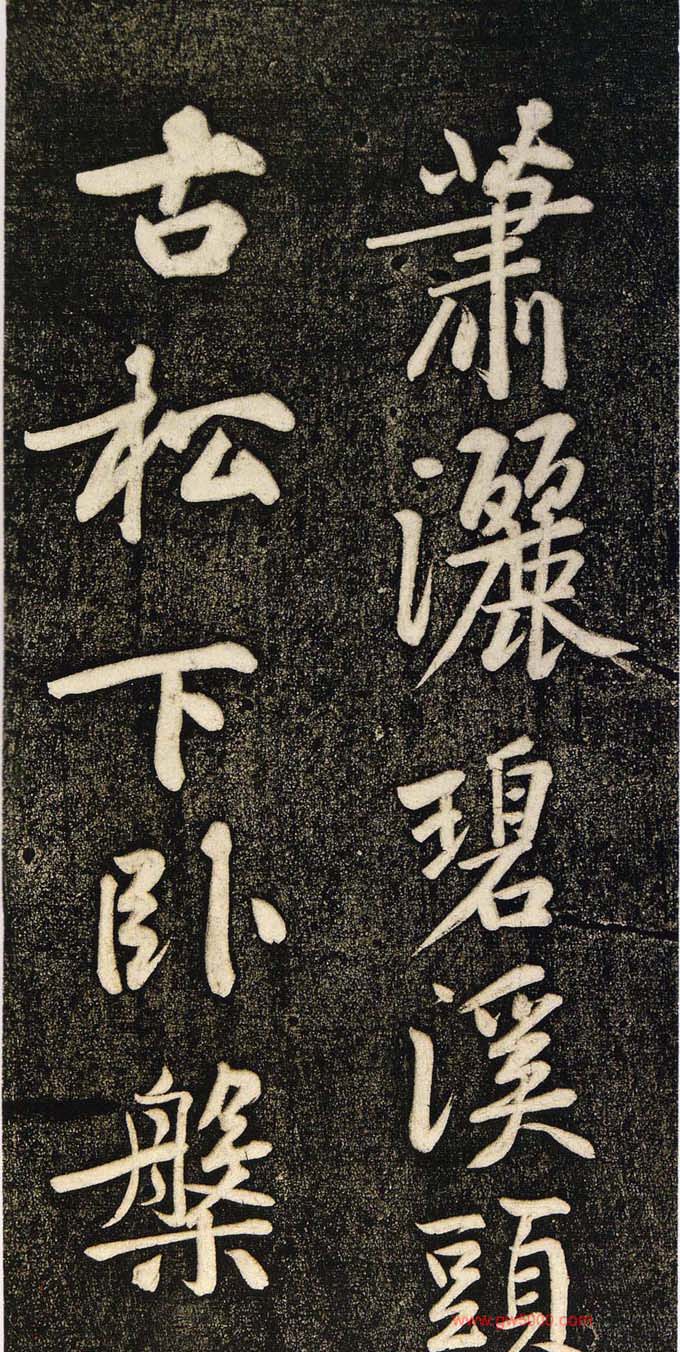 蕭灑碧溪頭
古松下臥槃
www.gw5000.com